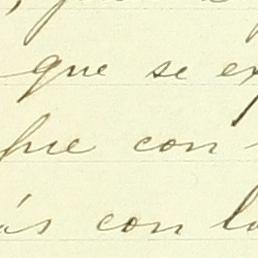 que se ex
fue con
ás con lo